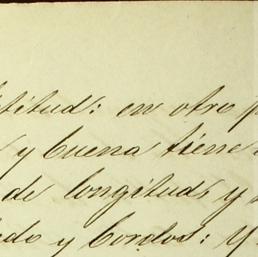 titud: en otro p
y buena tiene
de longitud, y
edo y bordos: y